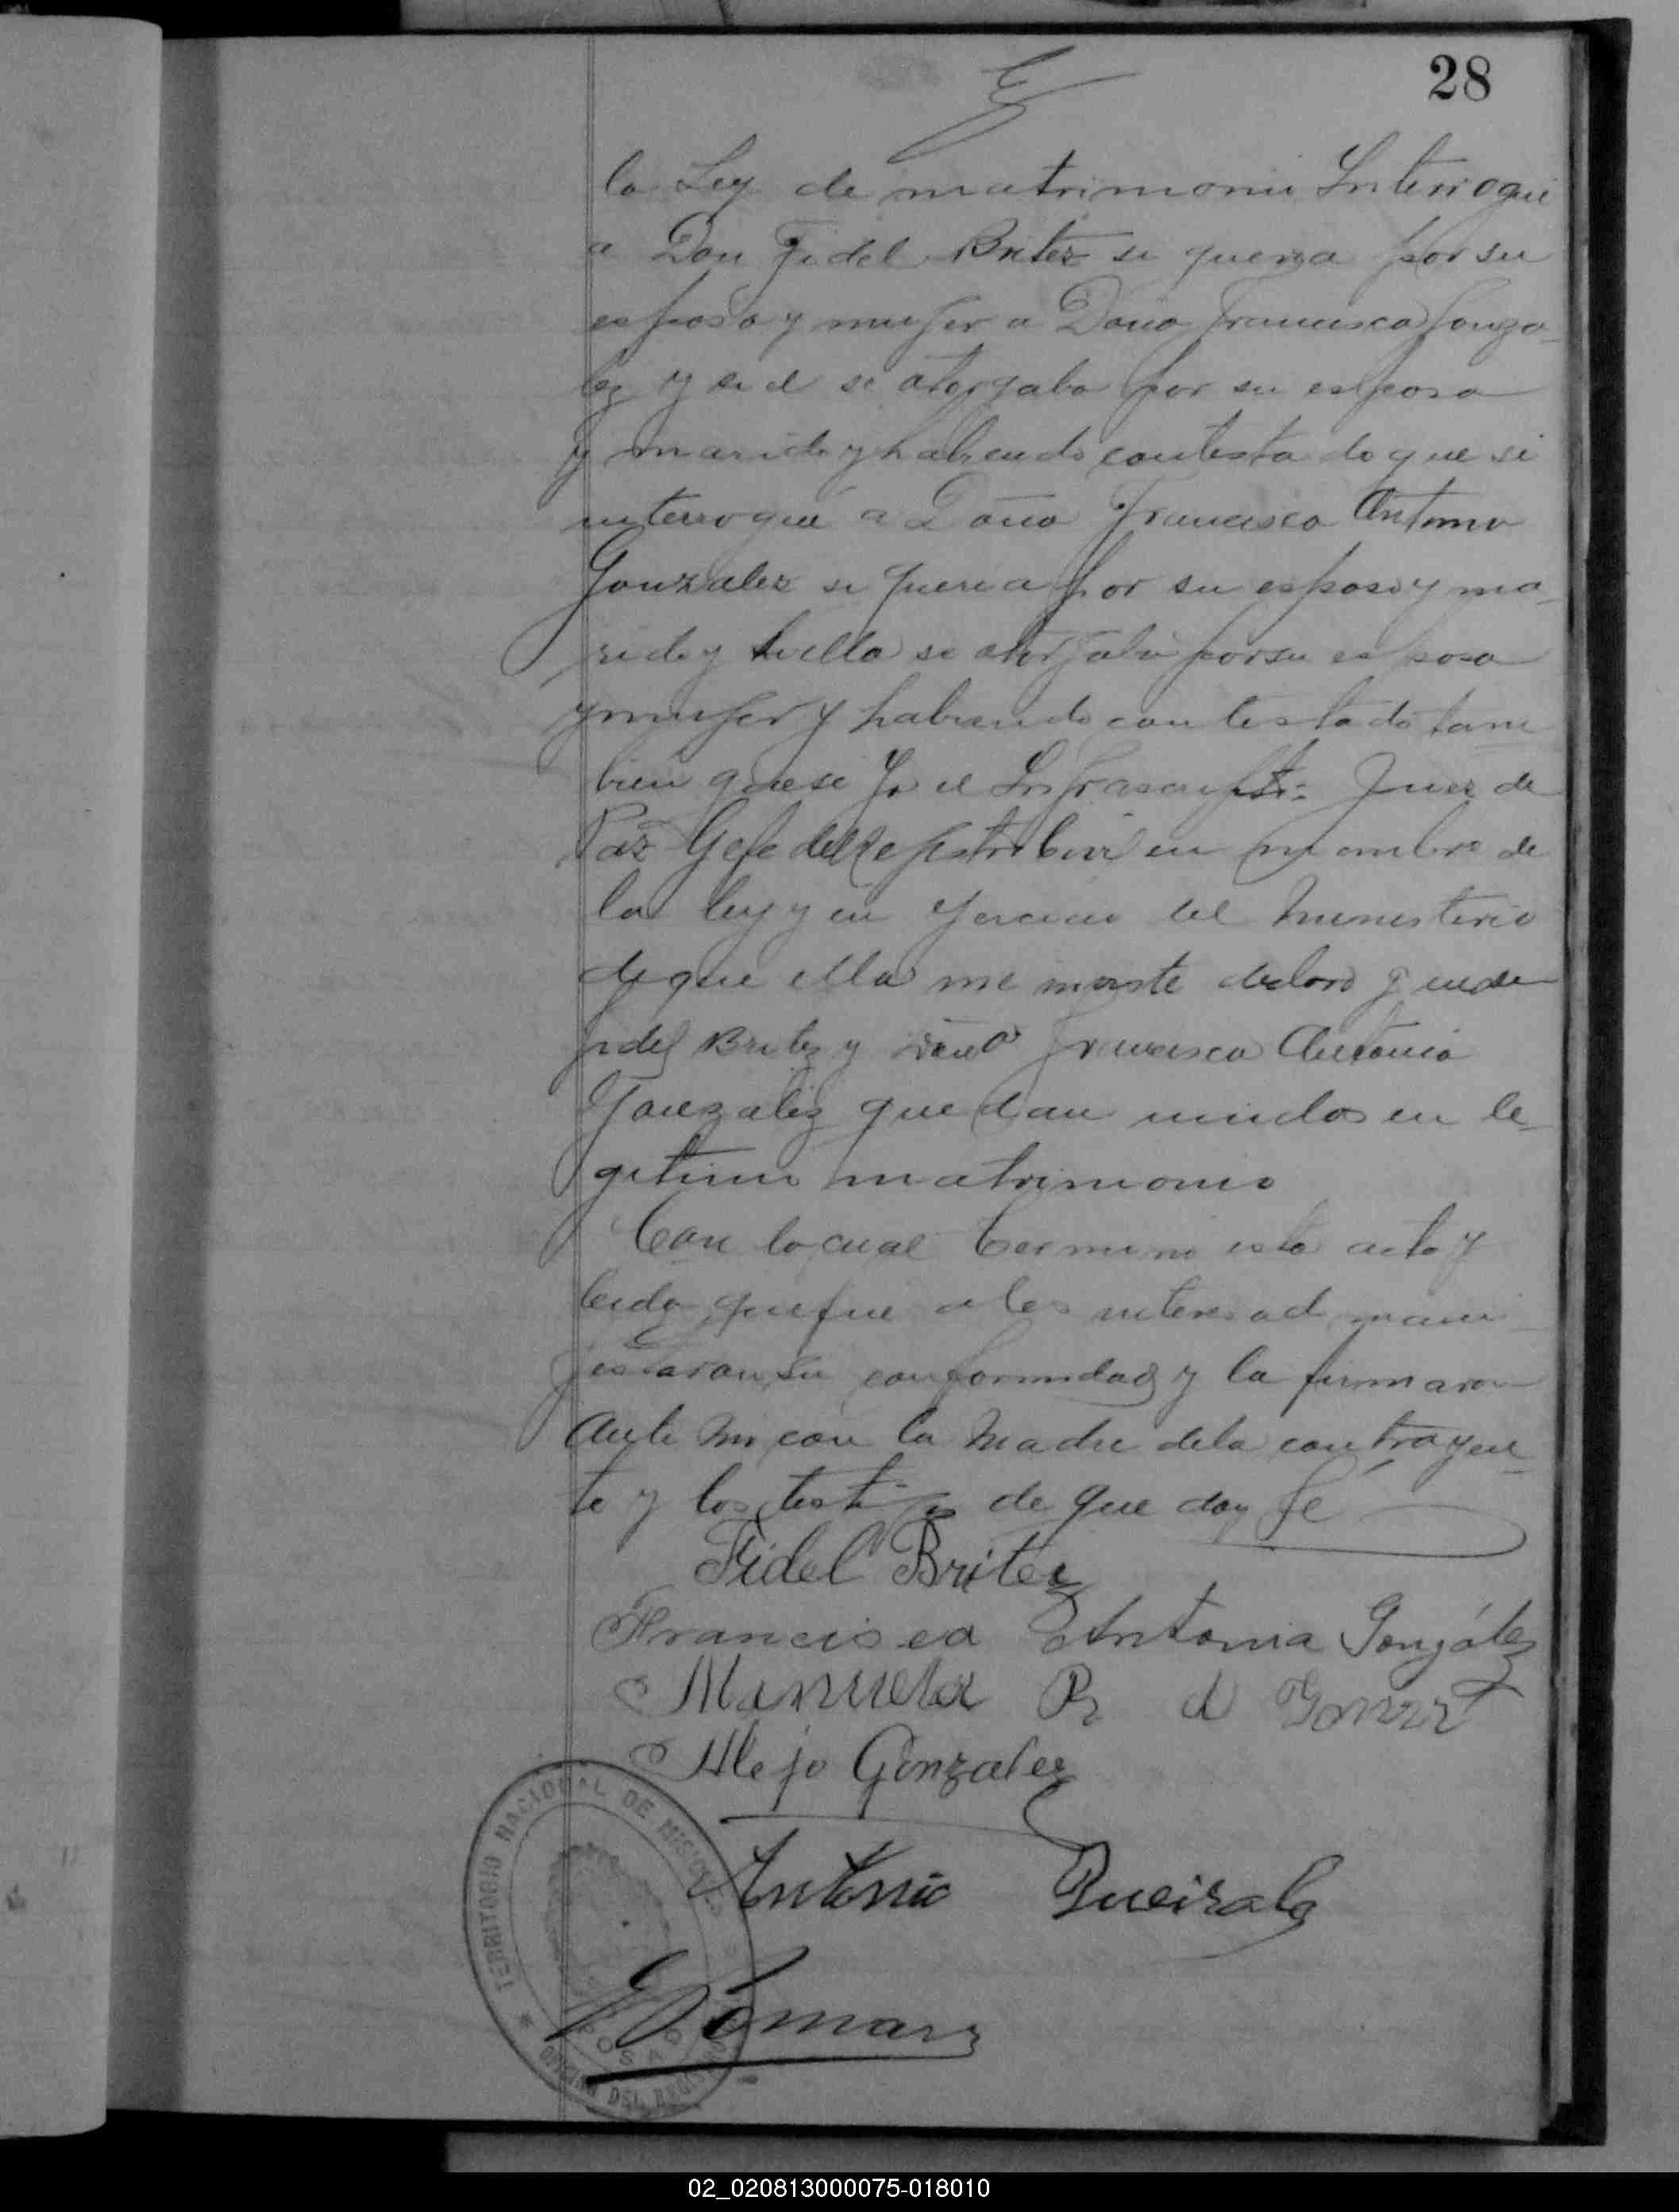 28
la Ley de matrimonio Interrogué
a Don Fidel Britez si queria por su
esposa y mujer a Doña Francisca Gonza-
lez y si el se otorgaba por su esposo
y marido y habiendo contestado que si
interrogué a Doña Francisca Antonia
Gonzalez si queria por su esposo y ma-
rido y si ella se otorgaba por su esposa
y mujer y habiendo contestado tam
bien que si Yo el Infrascripto Juez de
Paz Gefe del Registro Civil en nombre de
la ley y en ejercicio del Ministerio
de que ella me inviste declaro que
Fidel Britez y Doña Francisca Antonia
Gonzalez quedan unidos en le-
gitimo matrimonio
Con lo cual termino esta acta y
leida que fue a los interesad mani-
festaron su conformidad y la firmaron
ante mi con la Madre de la contrayen-
te y los testigos de que doy fé
Fidel Britez
Francisca Antonia González
Manuela R d
Alejo Gonzalez
Antonio Queirolo
TERRITORIO NACIONAL DE MISIONES
OFICINA DEL REGISTRO
POSADAS
02_020813000075-018010